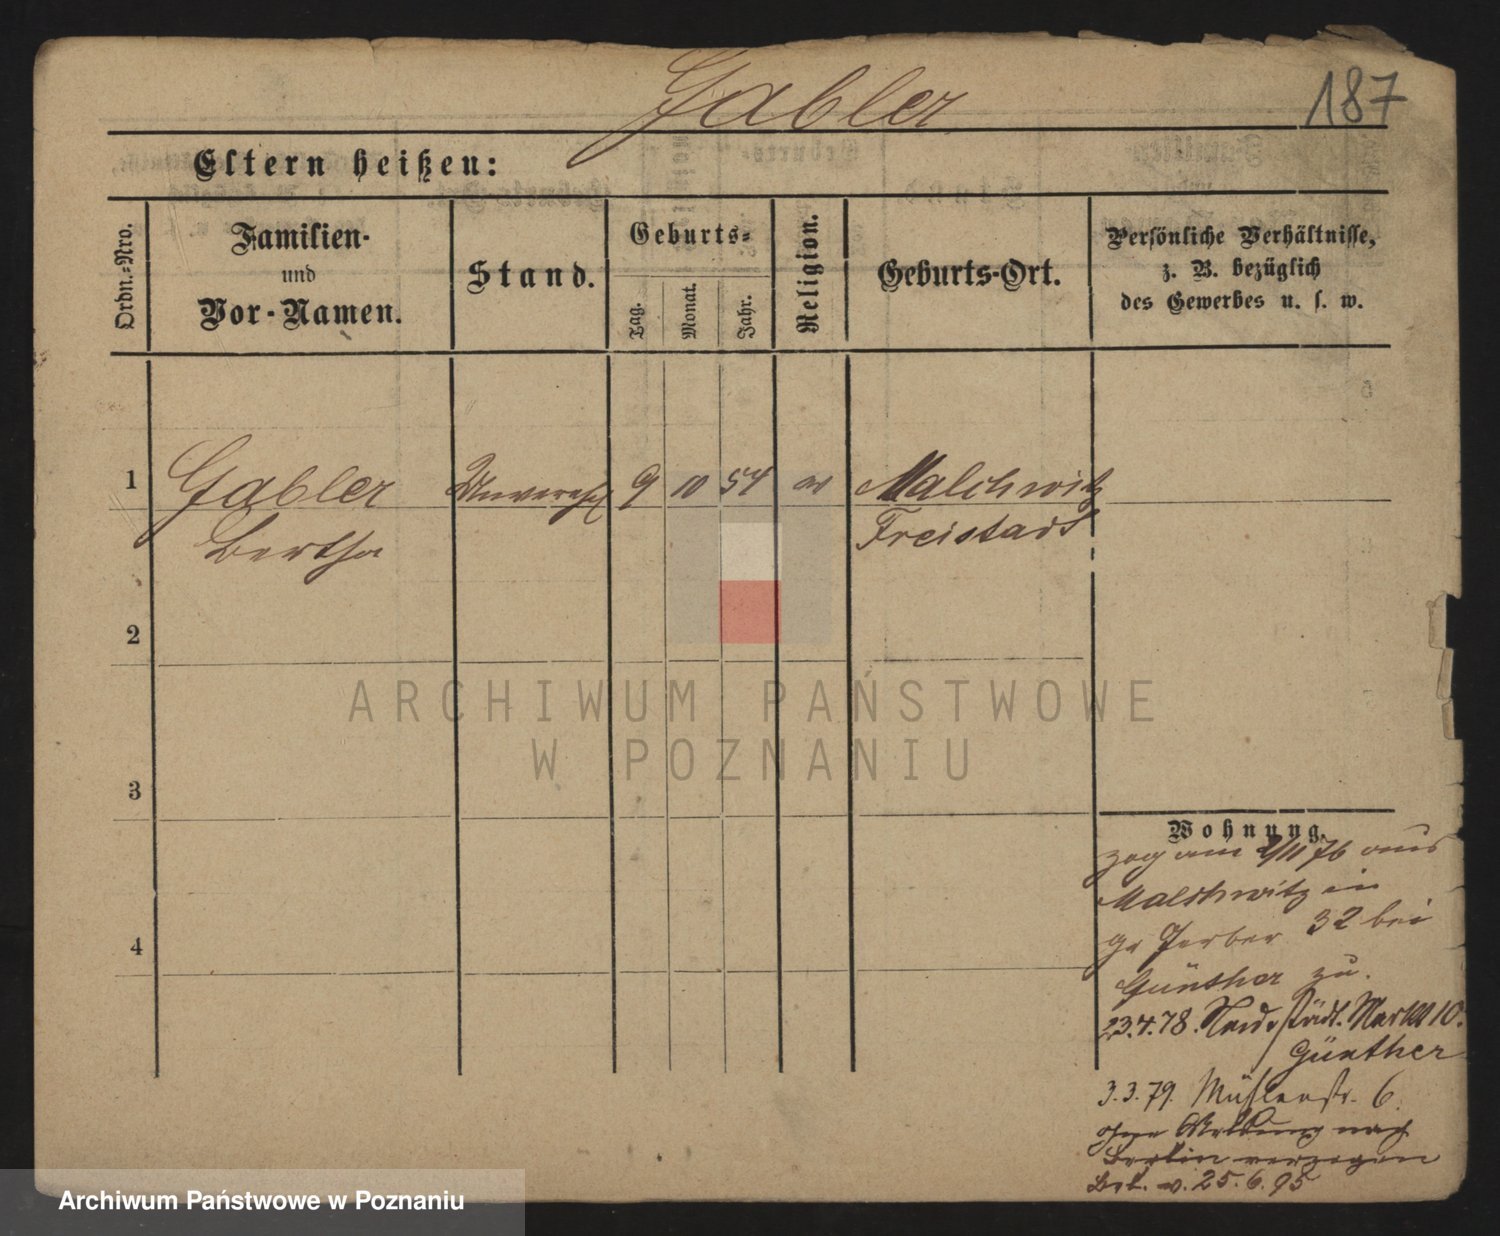 Gabler
187
Eltern heißen:
Ordn.=Nro.
Familien-
und
Vor-Namen.
Stand.
Geburts=
Tag.
Monat.
Jahr.
Religion.
Geburts-Ort.
Persönliche Verhältnisse,
z. B. bezüglich
des Gewerbes u. s. w.
1
Gabler
Bertha
Unvereh
9
10
54
ev
Malchwitz
Freistadt
2
3
4
Wohnung.
zog am 2/11 76 aus
Malschwitz in
gr Gerber 32 bei
Günther zu.
23.4.78. Neustädt. Markt 10.
Günther
3.3.79. Mühlenstr. 6.
ohne Meldung nach
Berlin verzogen
v. 25.6.95
ARCHIWUM PAŃSTWOWE
W POZNANIU
Archiwum Państwowe w Poznaniu